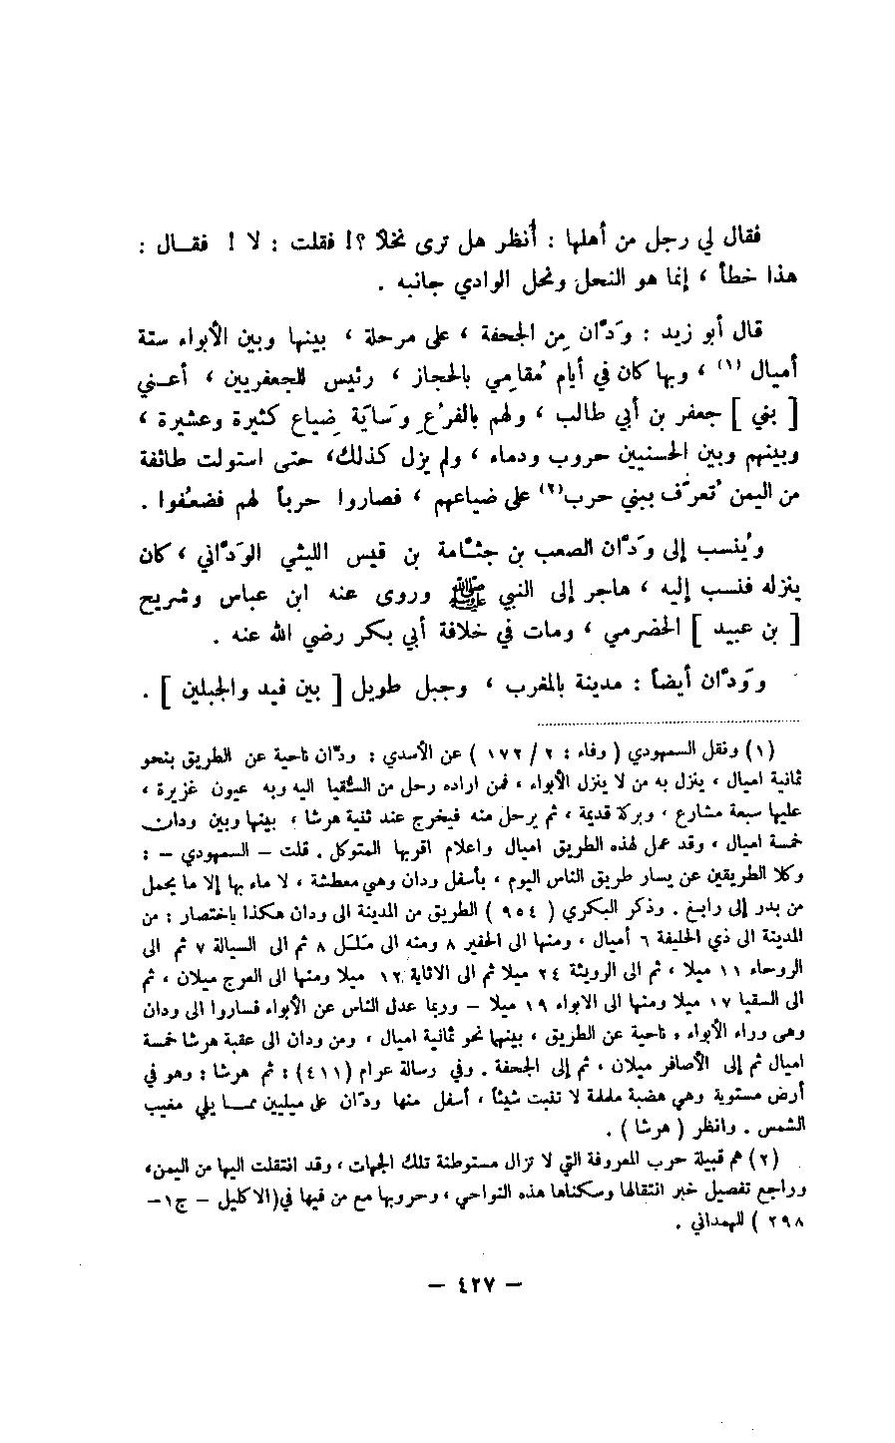 فقال لي رجل من أهلها : أنظر هل ترى نخلاً ؟! فقلت : لا ! فقـال :
هذا خطأ ، إنما هو النحل ونحل الوادي جانبه .
قال أبو زيد : وَدَّان مِن الجحفة ، على مرحلة ، بينها وبين الأبواء ستة
أميال (١) ، وبها كان في أيام مُقامِي بالحجاز ، رئيس للجعفريين ، أعـني
[ بني ] جعفر بن أبي طالب ، ولهم بالفُرْعِ وسَايَة ضِياع كثيرة وعشيرة ،
وبينهم وبين الحسنيين حروب ودماء ، ولم يزل كذلك، حتى استولت طائفة
من اليمن تُعرَف ببني حرب(٢) على ضياعهم ، فصاروا حرباً لهم فضعُفوا .
ويُنسب إلى وَدَّان الصعب بن جثَّامة بن قيس الليثي الوَدَّاني ، كان
ينزله فنسب إليه ، هاجر إلى النبي ﷺ وروى عنه ابن عباس وشريح
[ بن عبيد ] الحضرمي ، ومات في خلافة أبي بكر رضي الله عنه .
ووَدَّان أيضاً : مدينة بالمغرب ، وجبل طويل [ بين فيد والجبلين ] .
(١) ونقل السمهودي ( وفاء : ٢ / ١٧٢ ) عن الأسدي : ودَّان ناحية عن الطريق بنحو
ثمانية اميال ، ينزل به من لا ينزل الأبواء ، فمن اراده رحل من السُّقيا اليه وبه عيون غزيرة ،
عليها سبعة مشارع ، وبركة قديمة ، ثم يرحل منه فيخرج عند ثنية هرشا ، بينها وبين ودان
خمسة اميال ، وقد عمل لهذه الطريق اميال واعلام اقربها المتوكل . قلت – السمهودي – :
وكلا الطريقين عن يسار طريق الناس اليوم ، بأسفل ودان وهي معطشة ، لا ماء بها إلا ما يحمل
من بدر إلى رابـغ . وذكر البكري ( ٩٥٤ ) الطريق من المدينة الى ودان هكذا باختصار : من
المدينة الى ذي الحليفة ٦ أميال ، ومنها الى الحفير ٨ ومنه الى مَلَل ٨ ثم الى السيالة ٧ ثم الى
الروحاء ١١ ميلا ، ثم الى الرويثة ٢٤ ميلا ثم الى الاثاية ١٢ ميلا ومنها الى العرج ميلان ، ثم
الى السقيا ١٧ ميلا ومنها الى الابواء ١٩ ميلا – وربما عدل الناس عن الأبواء فساروا الى ودان
وهى وراء الأبواء ، ناحية عن الطريق ، بينهما نحو ثمانية اميال ، ومن ودان الى عقبة هرشا خمسة
اميال ثم إلى الأصافر ميلان ، ثم إلى الجحفة . وفي رسالة عرام (٤١١) : ثم هرشا : وهو في
أرض مستوية وهي هضبة ململة لا تنبت شيئاً ، أسفل منها ودّان على ميلين ممـا يلي مغيب
الشمس . وانظر ( هرشا ) .
(٢) هم قبيلة حرب المعروفة التي لا تزال مستوطنة تلك الجهات ، وقد انتقلت اليها من اليمن،
وراجع تفصيل خبر انتقالها وسكناها هذه النواحي ، وحروبها مع من فيها في(الاكليل – ج١–
٢٩٨ ) للهمداني .
– ٤٢٧ –